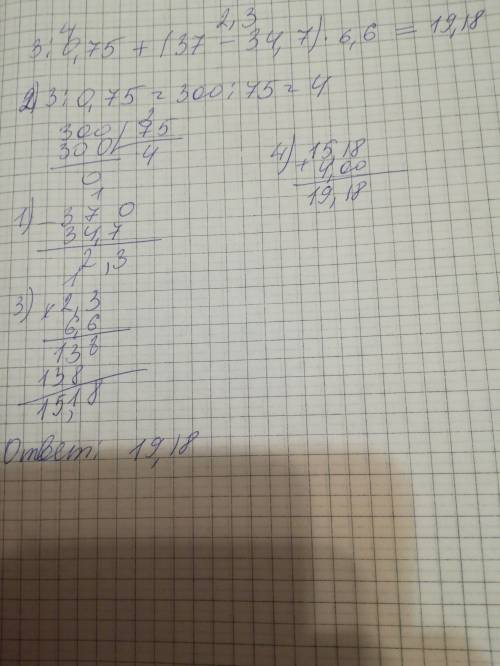 4 2,3
3:0,75 + (37 - 34,7) · 6,6 = 19,18
2) 3:0,75 = 300:75 = 4
2
300 | 75
300 | 4
0
4) 15,18
+ 4,00
19,18
1
1) - 37 0
34,7
2,3
1
3) × 2,3
6,6
138
138
15,18
Ответ: 19,18